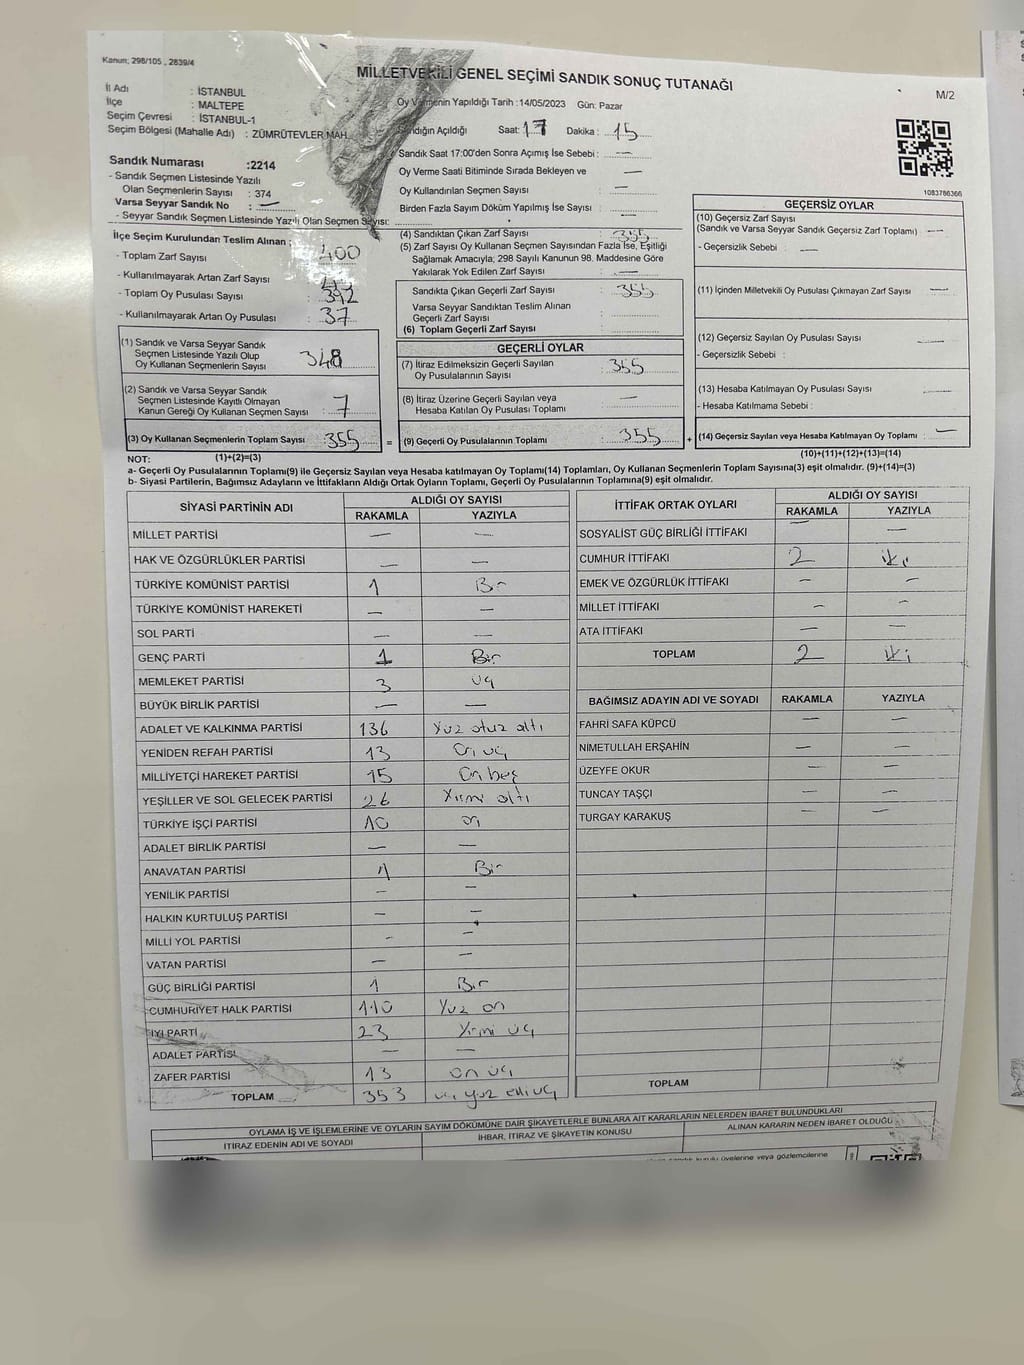 Kanun; 298/105 , 2839/4
MİLLETVEKİLİ GENEL SEÇİMİ SANDIK SONUÇ TUTANAĞI
M/2
İl Adı : İSTANBUL
İlçe : MALTEPE
Seçim Çevresi : İSTANBUL-1
Seçim Bölgesi (Mahalle Adı) : ZÜMRÜTEVLER MAH.
Oy Vermenin Yapıldığı Tarih :14/05/2023 Gün: Pazar
Sandığın Açıldığı Saat: 17 Dakika : 15
Sandık Saat 17:00'den Sonra Açımış İse Sebebi : —
Oy Verme Saati Bitiminde Sırada Bekleyen ve —
Oy Kullandırılan Seçmen Sayısı : —
Birden Fazla Sayım Döküm Yapılmış İse Sayısı : —
1083786366
Sandık Numarası :2214
- Sandık Seçmen Listesinde Yazılı
Olan Seçmenlerin Sayısı : 374
Varsa Seyyar Sandık No : —
- Seyyar Sandık Seçmen Listesinde Yazılı Olan Seçmen Sayısı:
İlçe Seçim Kurulundan Teslim Alınan :
- Toplam Zarf Sayısı : 400
- Kullanılmayarak Artan Zarf Sayısı :
- Toplam Oy Pusulası Sayısı : 392
- Kullanılmayarak Artan Oy Pusulası : 37
(1) Sandık ve Varsa Seyyar Sandık
Seçmen Listesinde Yazılı Olup
Oy Kullanan Seçmenlerin Sayısı : 348
(2) Sandık ve Varsa Seyyar Sandık
Seçmen Listesinde Kayıtlı Olmayan
Kanun Gereği Oy Kullanan Seçmen Sayısı : 7
(3) Oy Kullanan Seçmenlerin Toplam Sayısı : 355 =
(1)+(2)=(3)
(4) Sandıktan Çıkan Zarf Sayısı : 355
(5) Zarf Sayısı Oy Kullanan Seçmen Sayısından Fazla İse, Eşitliği
Sağlamak Amacıyla; 298 Sayılı Kanunun 98. Maddesine Göre
Yakılarak Yok Edilen Zarf Sayısı : —
Sandıkta Çıkan Geçerli Zarf Sayısı : 355
Varsa Seyyar Sandıktan Teslim Alınan
Geçerli Zarf Sayısı :
(6) Toplam Geçerli Zarf Sayısı :
GEÇERLİ OYLAR
(7) İtiraz Edilmeksizin Geçerli Sayılan
Oy Pusulalarının Sayısı : 355
(8) İtiraz Üzerine Geçerli Sayılan veya
Hesaba Katılan Oy Pusulası Toplamı : —
(9) Geçerli Oy Pusulalarının Toplamı : 355 +
GEÇERSİZ OYLAR
(10) Geçersiz Zarf Sayısı
(Sandık ve Varsa Seyyar Sandık Geçersiz Zarf Toplamı) : —
- Geçersizlik Sebebi : —
(11) İçinden Milletvekili Oy Pusulası Çıkmayan Zarf Sayısı : —
(12) Geçersiz Sayılan Oy Pusulası Sayısı : —
- Geçersizlik Sebebi :
(13) Hesaba Katılmayan Oy Pusulası Sayısı :
- Hesaba Katılmama Sebebi :
(14) Geçersiz Sayılan veya Hesaba Katılmayan Oy Toplamı : —
(10)+(11)+(12)+(13)=(14)
NOT:
a- Geçerli Oy Pusulalarının Toplamı(9) ile Geçersiz Sayılan veya Hesaba katılmayan Oy Toplamı(14) Toplamları, Oy Kullanan Seçmenlerin Toplam Sayısına(3) eşit olmalıdır. (9)+(14)=(3)
b- Siyasi Partilerin, Bağımsız Adayların ve İttifakların Aldığı Ortak Oyların Toplamı, Geçerli Oy Pusulalarının Toplamına(9) eşit olmalıdır.
SİYASİ PARTİNİN ADI ALDIĞI OY SAYISI
RAKAMLA YAZIYLA
MİLLET PARTİSİ — —
HAK VE ÖZGÜRLÜKLER PARTİSİ — —
TÜRKİYE KOMÜNİST PARTİSİ 1 Bir
TÜRKİYE KOMÜNİST HAREKETİ — —
SOL PARTİ — —
GENÇ PARTİ 1 Bir
MEMLEKET PARTİSİ 3 üç
BÜYÜK BİRLİK PARTİSİ — —
ADALET VE KALKINMA PARTİSİ 136 Yüz otuz altı
YENİDEN REFAH PARTİSİ 13 On üç
MİLLİYETÇİ HAREKET PARTİSİ 15 On beş
YEŞİLLER VE SOL GELECEK PARTİSİ 26 Yirmi altı
TÜRKİYE İŞÇİ PARTİSİ 10 on
ADALET BİRLİK PARTİSİ — —
ANAVATAN PARTİSİ 1 Bir
YENİLİK PARTİSİ — —
HALKIN KURTULUŞ PARTİSİ — —
MİLLİ YOL PARTİSİ — —
VATAN PARTİSİ — —
GÜÇ BİRLİĞİ PARTİSİ 1 Bir
CUMHURİYET HALK PARTİSİ 110 Yüz on
İYİ PARTİ 23 Yirmi üç
ADALET PARTİSİ — —
ZAFER PARTİSİ 13 on üç
TOPLAM 353 üç yüz elli üç
İTTİFAK ORTAK OYLARI ALDIĞI OY SAYISI
RAKAMLA YAZIYLA
SOSYALİST GÜÇ BİRLİĞİ İTTİFAKI — —
CUMHUR İTTİFAKI 2 iki
EMEK VE ÖZGÜRLÜK İTTİFAKI — —
MİLLET İTTİFAKI — —
ATA İTTİFAKI — —
TOPLAM 2 iki
BAĞIMSIZ ADAYIN ADI VE SOYADI RAKAMLA YAZIYLA
FAHRİ SAFA KÜPCÜ — —
NİMETULLAH ERŞAHİN — —
ÜZEYFE OKUR — —
TUNCAY TAŞÇI — —
TURGAY KARAKUŞ — —
TOPLAM
OYLAMA İŞ VE İŞLEMLERİNE VE OYLARIN SAYIM DÖKÜMÜNE DAİR ŞİKAYETLERLE BUNLARA AİT KARARLARIN NELERDEN İBARET BULUNDUKLARI
İTİRAZ EDENİN ADI VE SOYADI İHBAR, İTİRAZ VE ŞİKAYETİN KONUSU ALINAN KARARIN NEDEN İBARET OLDUĞU
sandık kurulu üyelerine veya gözlemcilerine